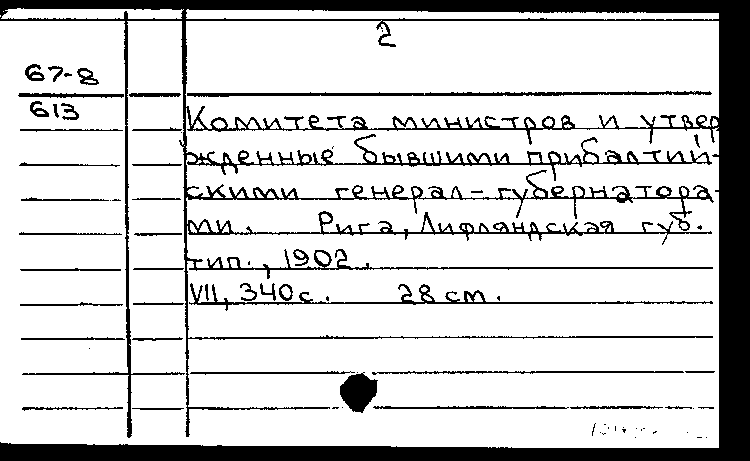 2
67-8
613
Комитета министров и утвер
жденные бывшими прибалтий-
скими генерал-губернатора-
ми. Рига, Лифляндская губ.
тип., 1902.
VII, 340 с. 28 см.